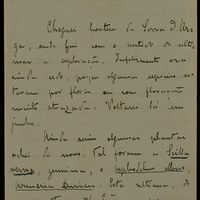 Cheguei hontem da Serra d'Arga, ainda fui com o intuito de ultimar a exploração. Infelizmente era
ainda cedo, porque algumas especies estavam por florir ou com floração
muito atrazada. Voltarei lá em
junho.
Ainda assim algumas plantas
achei de novo. Tal foram a Scilla
verna, genuina, o Asphodelus albus,
Armeria Duriaei. Esta ultima,